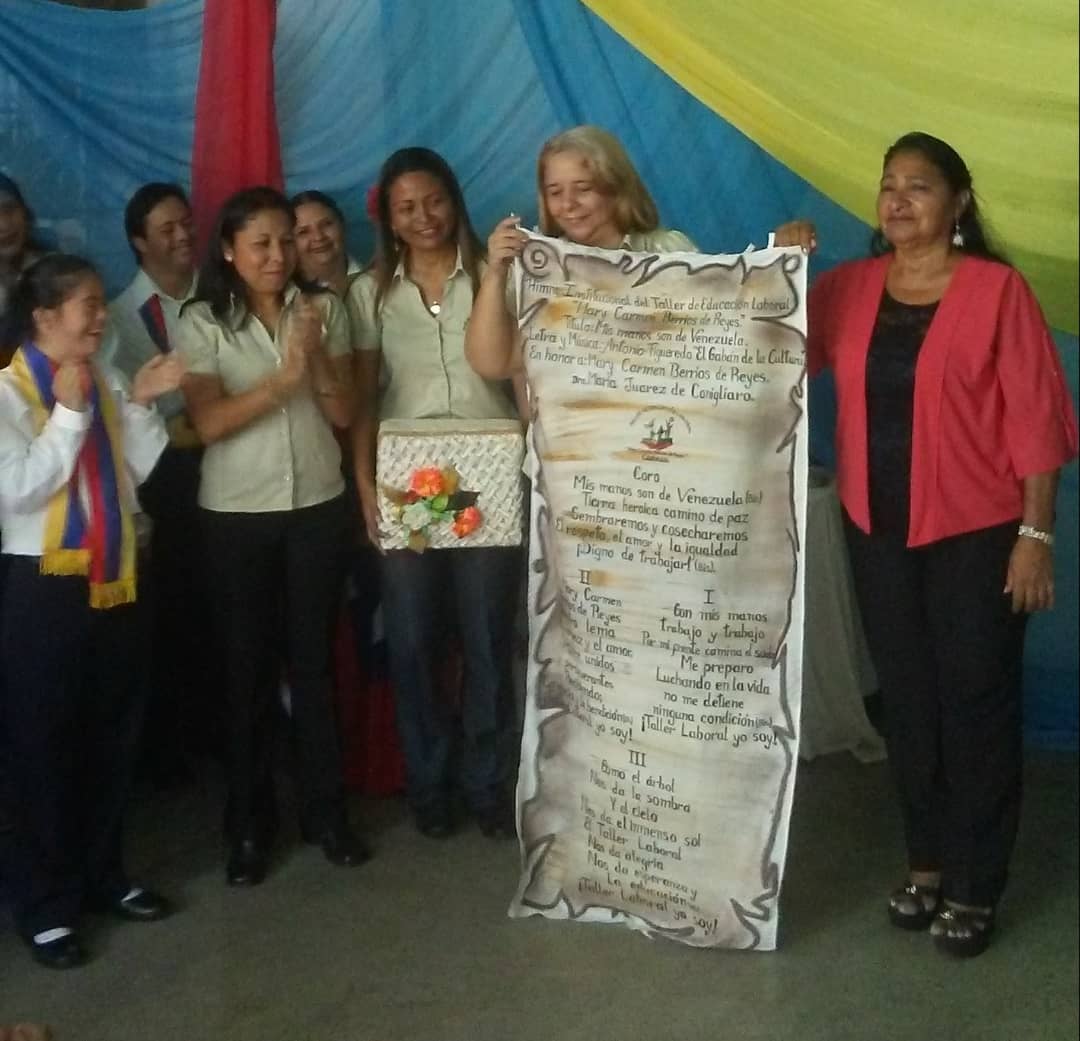 Himno Institucional del Taller de Educación Laboral
"Mary Carmen Berrios de Reyes."
Título: Mis manos son de Venezuela.
Letra y Música: Antonio Figueredo "El Gabán de la Cultura"
En honor a: Mary Carmen Berrios de Reyes.
Dra. María Juarez de Conigliaro.
Coro
Mis manos son de Venezuela (bis)
Tierra heroica camino de paz
Sembraremos y cosecharemos
El respeto, el amor y la igualdad
¡Digno de trabajar! (bis).
I
Con mis manos
trabajo y trabajo
Por mi frente camina el
Me preparo
Luchando en la vida
no me detiene
ninguna condición (bis)
¡Taller Laboral yo soy!
II
Carmen
de Reyes
lema
y el amor,
unidos
y la bendición
yo soy!
III
Como el árbol
Nos da la sombra
Y el cielo
Nos da el inmenso sol
El Taller Laboral
Nos da alegría
Nos da esperanza y
La educación
¡Taller Laboral yo soy!